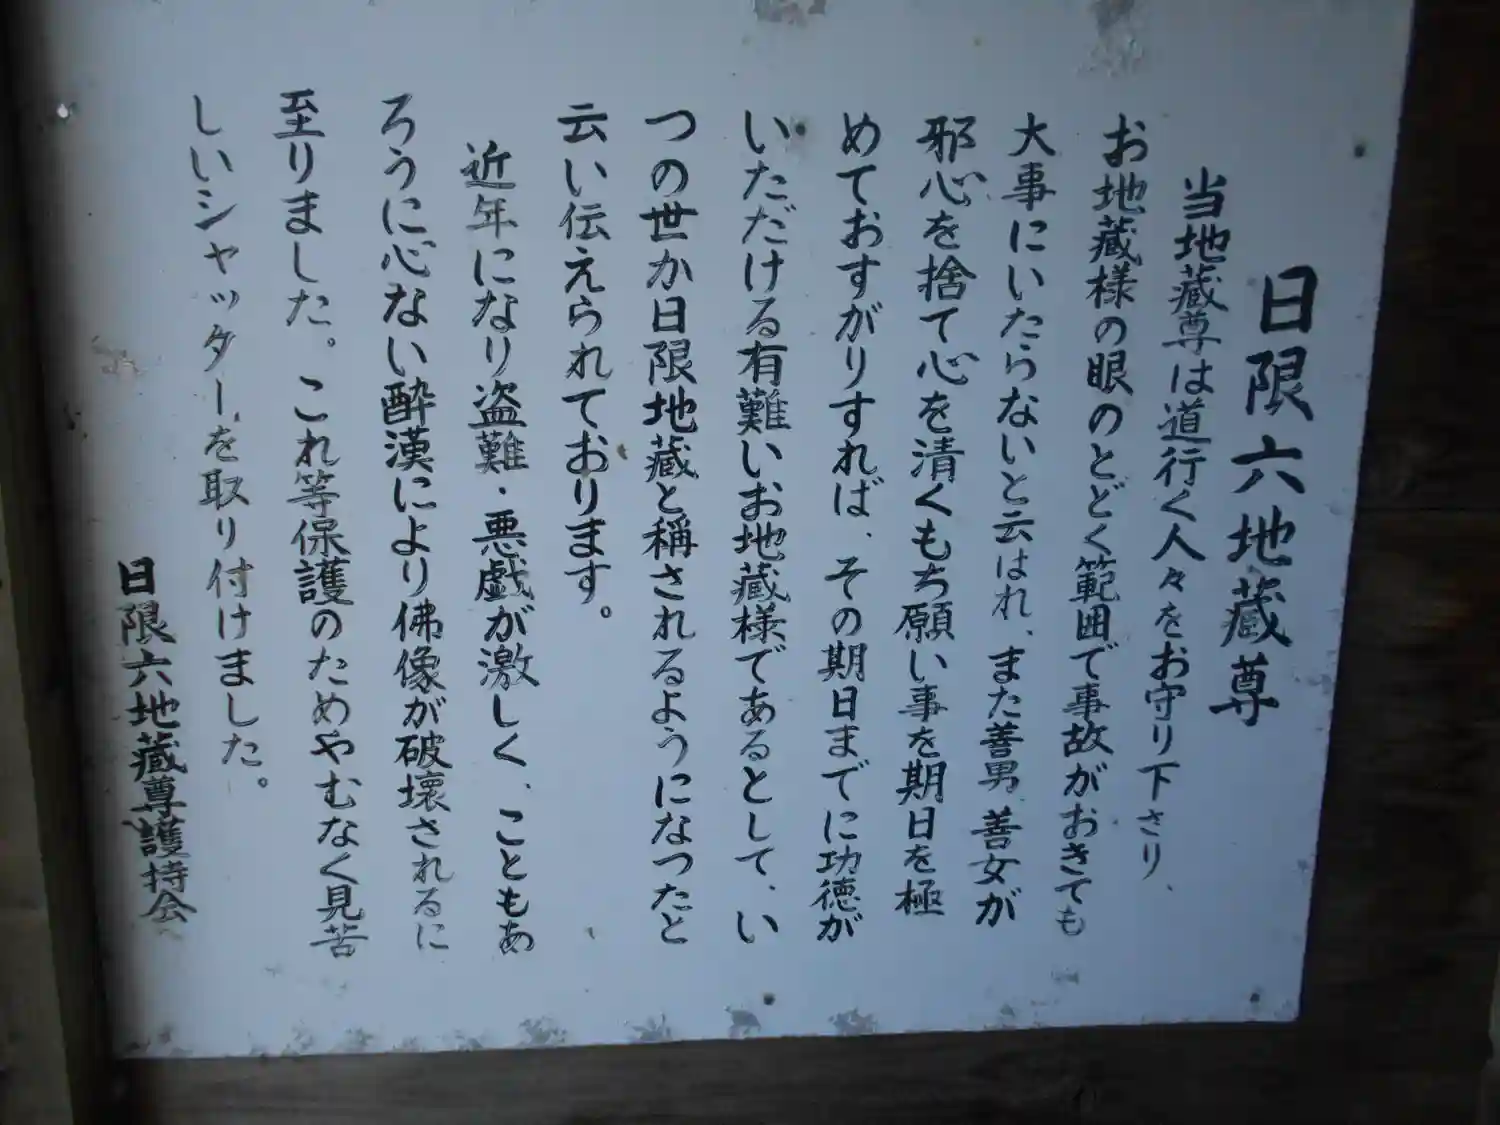 日限六地蔵尊
当地蔵尊は道行く人々をお守り下さり、
お地蔵様の眼のとどく範囲で事故がおきても
大事にいたらないと云はれ、また善男善女が
邪心を捨て心を清くもち願い事を期日を極
めておすがりすれば、その期日までに功徳が
いただける有難いお地蔵様であるとして、い
つの世か日限地蔵と稱されるようになつたと
云い伝えられております。
近年になり盗難・悪戯が激しく、こともあ
ろうに心ない酔漢により佛像が破壊されるに
至りました。これ等保護のためやむなく見苦
しいシャッターを取り付けました。
日限六地蔵尊護持会